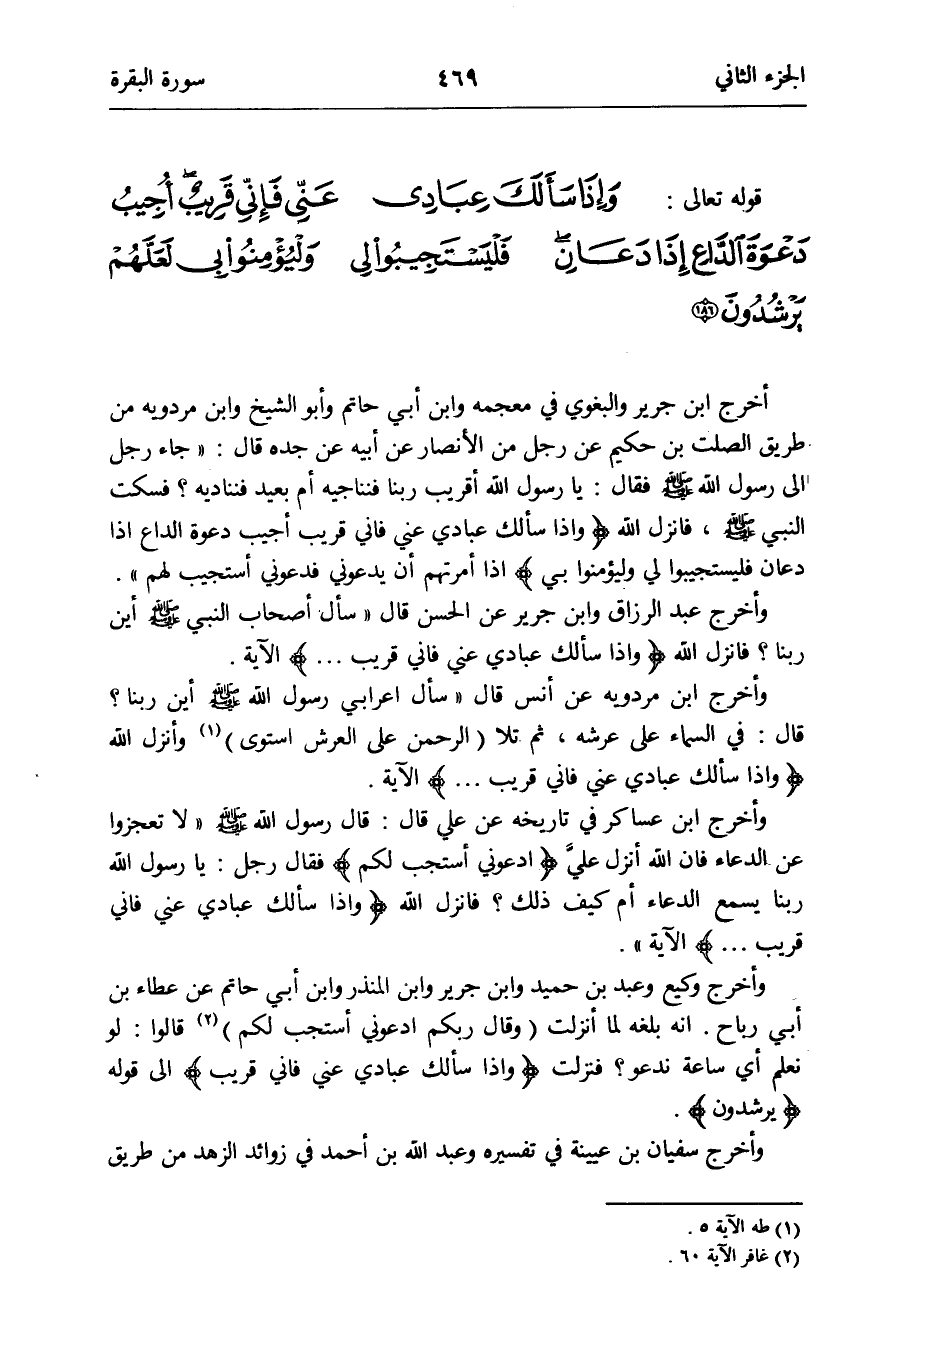 الجزء الثاني ٤٦٩ سورة البقرة
قوله تعالى : وَإِذَا سَأَلَكَ عِبَادِى عَنِّى فَإِنِّى قَرِيبٌ ۖ أُجِيبُ
دَعْوَةَ ٱلدَّاعِ إِذَا دَعَانِ ۖ فَلْيَسْتَجِيبُوا۟ لِى وَلْيُؤْمِنُوا۟ بِى لَعَلَّهُمْ
يَرْشُدُونَ ١٨٦
أخرج ابن جرير والبغوي في معجمه وابن أبـي حاتم وأبو الشيخ وابن مردويه من
طريق الصلت بن حكيم عن رجل من الأنصار عن أبيه عن جده قال : « جاء رجل
الى رسول الله ﷺ فقال : يا رسول الله أقريب ربنا فنناجيه أم بعيد فنناديه ؟ فسكت
النبـي ﷺ ، فانزل الله ﴿ واذا سألك عبادي عني فاني قريب أجيب دعوة الداع اذا
دعان فليستجيبوا لي وليؤمنوا بـي ﴾ اذا أمرتهم أن يدعوني فدعوني أستجيب لهم » .
وأخرج عبد الرزاق وابن جرير عن الحسن قال « سأل أصحاب النبـي ﷺ أين
ربنا ؟ فانزل الله ﴿ واذا سألك عبادي عني فاني قريب ... ﴾ الآية .
وأخرج ابن مردويه عن أنس قال « سأل اعرابـي رسول الله ﷺ أين ربنا ؟
قال : في السماء على عرشه ، ثم تلا ( الرحمن على العرش استوى )(١) وأنزل الله
﴿ واذا سألك عبادي عني فاني قريب ... ﴾ الآية .
وأخرج ابن عساكر في تاريخه عن علي قال : قال رسول الله ﷺ « لا تعجزوا
عن الدعاء فان الله أنزل عليَّ ﴿ ادعوني أستجب لكم ﴾ فقال رجل : يا رسول الله
ربنا يسمع الدعاء أم كيف ذلك ؟ فانزل الله ﴿ واذا سألك عبادي عني فاني
قريب ... ﴾ الآية » .
وأخرج وكيع وعبد بن حميد وابن جرير وابن المنذر وابن أبـي حاتم عن عطاء بن
أبـي رباح . انه بلغه لما أنزلت ( وقال ربكم ادعوني أستجب لكم )(٢) قالوا : لو
نعلم أي ساعة ندعو ؟ فنزلت ﴿ واذا سألك عبادي عني فاني قريب ﴾ الى قوله
﴿ يرشدون ﴾ .
وأخرج سفيان بن عيينة في تفسيره وعبد الله بن أحمد في زوائد الزهد من طريق
(١) طه الآية ٥ .
(٢) غافر الآية ٦٠ .